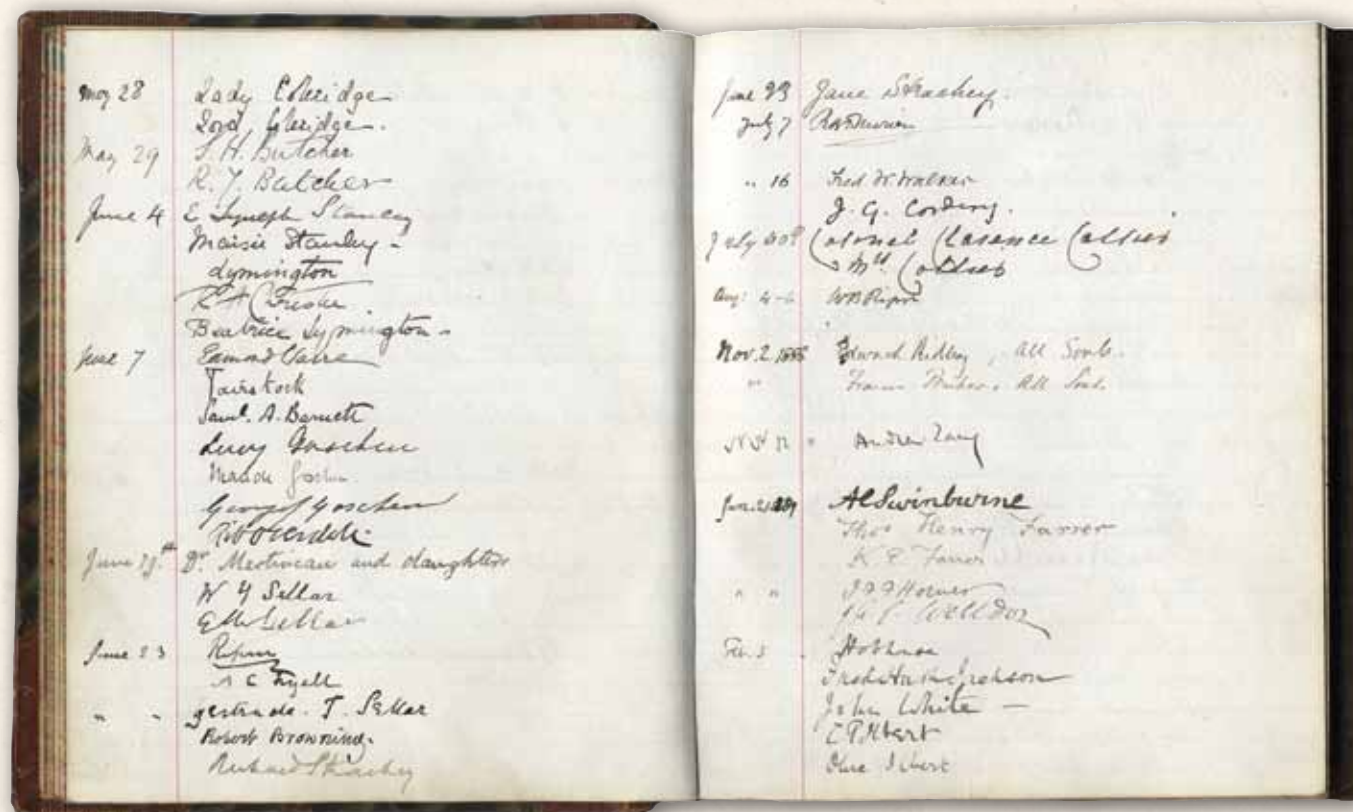 May 28 Lady Coleridge
Lord Coleridge.
May 29 S. H. Butcher
R. J. Butcher
June 4 E Stanley
Maisie Stanley -
Lymington
R A
Beatrice Lymington -
June 7 Edmond
Tavistock
Saml. A. Barnett
Lucy Goschen
Maude
George J Goschen
June Dr. Martineau and daughters
W Y Sellar
E M Sellar
June 23 Ripon
Lyell
" " Gertrude. T. Sellar
Robert Browning.
Richard Strachey
June 23 Jane Strachey.
July 7
" 16 Fred W Walker
J. G. Cordery.
July Colonel Clarence Collier
Mrs. Collier
Aug: 4-6 WB Ripon
Nov. 2 Edward Ridley, All Souls.
" All Souls.
Andrew Lang
AC Swinburne
Thos Henry Farrer
K E Farrer
" " Horner
Welldon
Feb. 5 Hobhouse
Jackson
John White —
C P Ilbert
Ilbert